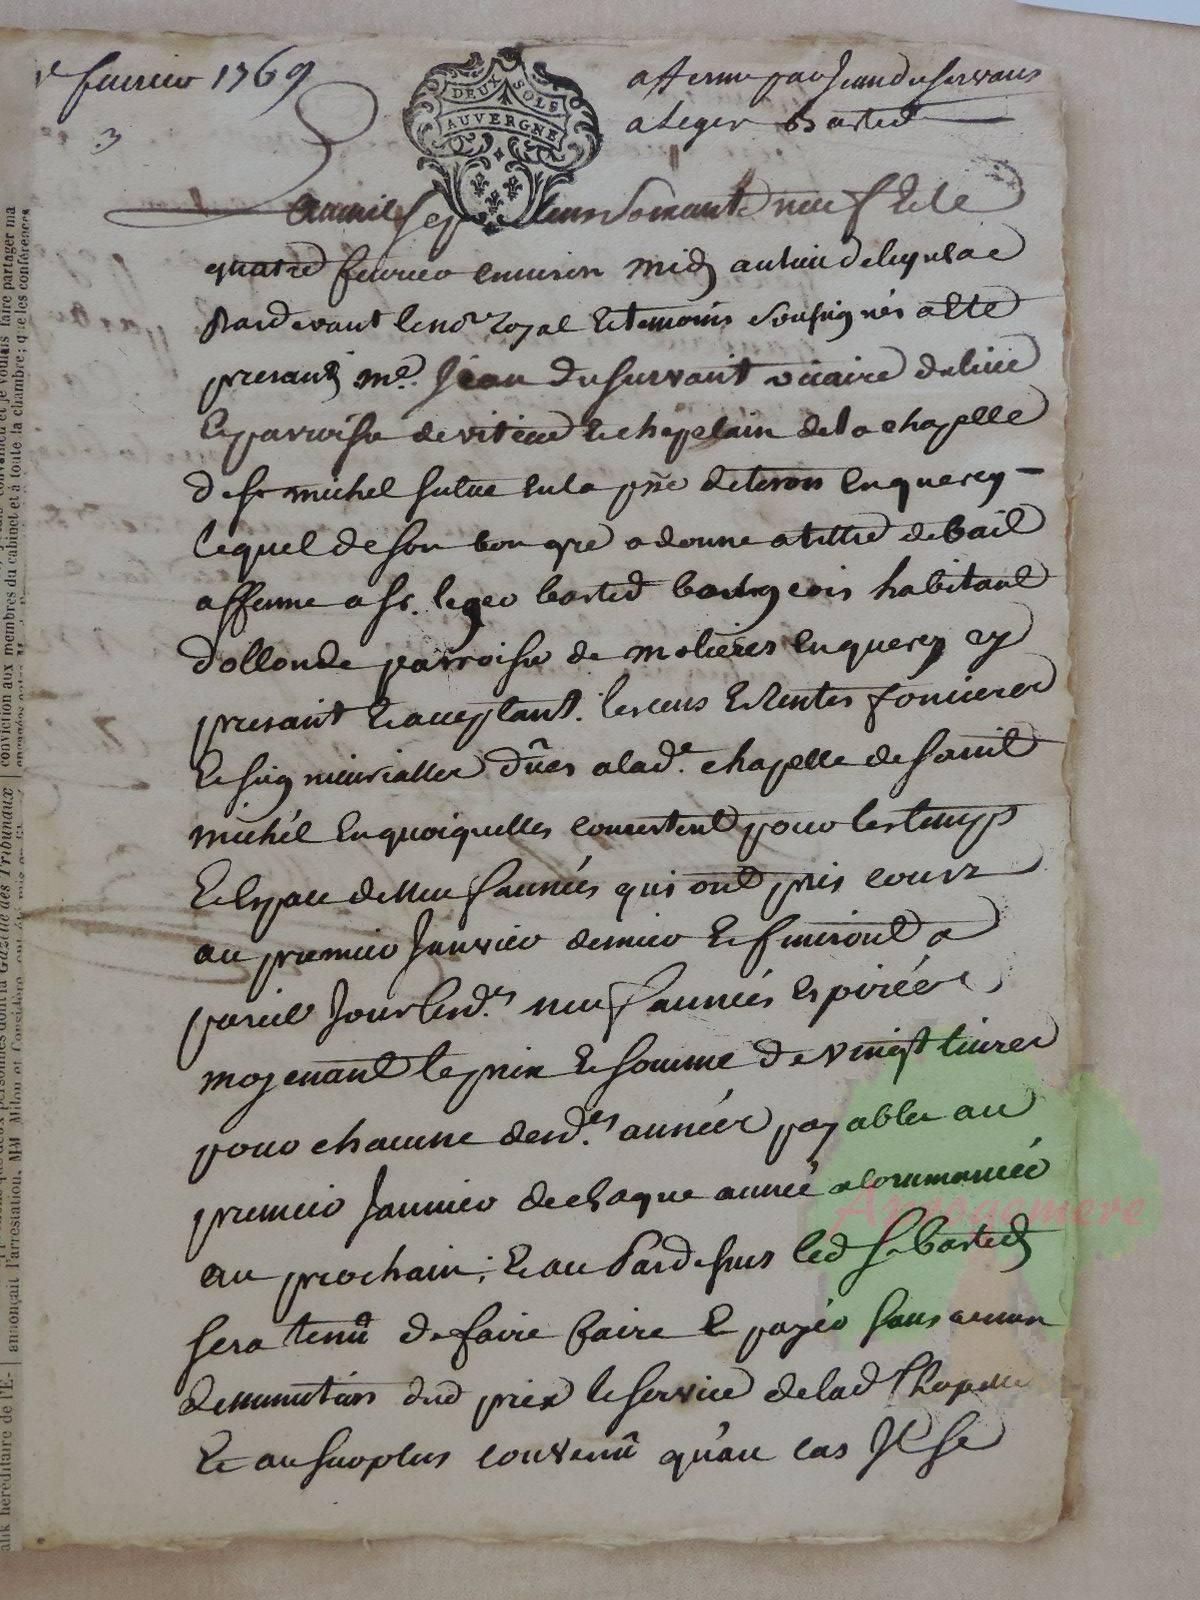 fevrier 1769
3
DEUX SOLS
AUVERGNE
afferme par Jean duservans
a Leger Bastid
Lan mil sept cens soixante neuf & le
quatre fevrier environ midy au lieu de
Pardevant le no.re royal & temoins soussignés a ete
presant me. Jean duservant vicaire du lieu
& parroisse de vitrac & chapelain de la chapelle
de st michel situe en la psse de teron en quercy -
lequel de son bon gre a donne a tittre de bail
afferme a sr. leger bastid bourgeois habitant
dollonde parroisse de molieres en quercy cy
presant & acceptant. les cens & rentes foncieres
& seigneurialles dües a lad.e chapelle de saint
michel en quoiquelles concistent pour les temps
& espace de neuf années qui ont pris cours
au premier Janvier dernier & finiront a
pareil Jour lesd.es neuf années expirées
moyenant le prix & somme de vingt livres
pour chacune desd.es années payables au
premier Janvier de chaque année a commancer
au prochain; & au Pardessus led sr bastid
sera tenu de faire faire & payer sans aucune
deminution dud prix le service de lad Chapelle
& au surplus convenu qu'au cas Il se
Arrogemere
conviction aux membres du cabinet et à toute la chambre; que les conférences
Gazette des Tribunaux
annonçait l'arrestation, MM
héréditaire de l'E-